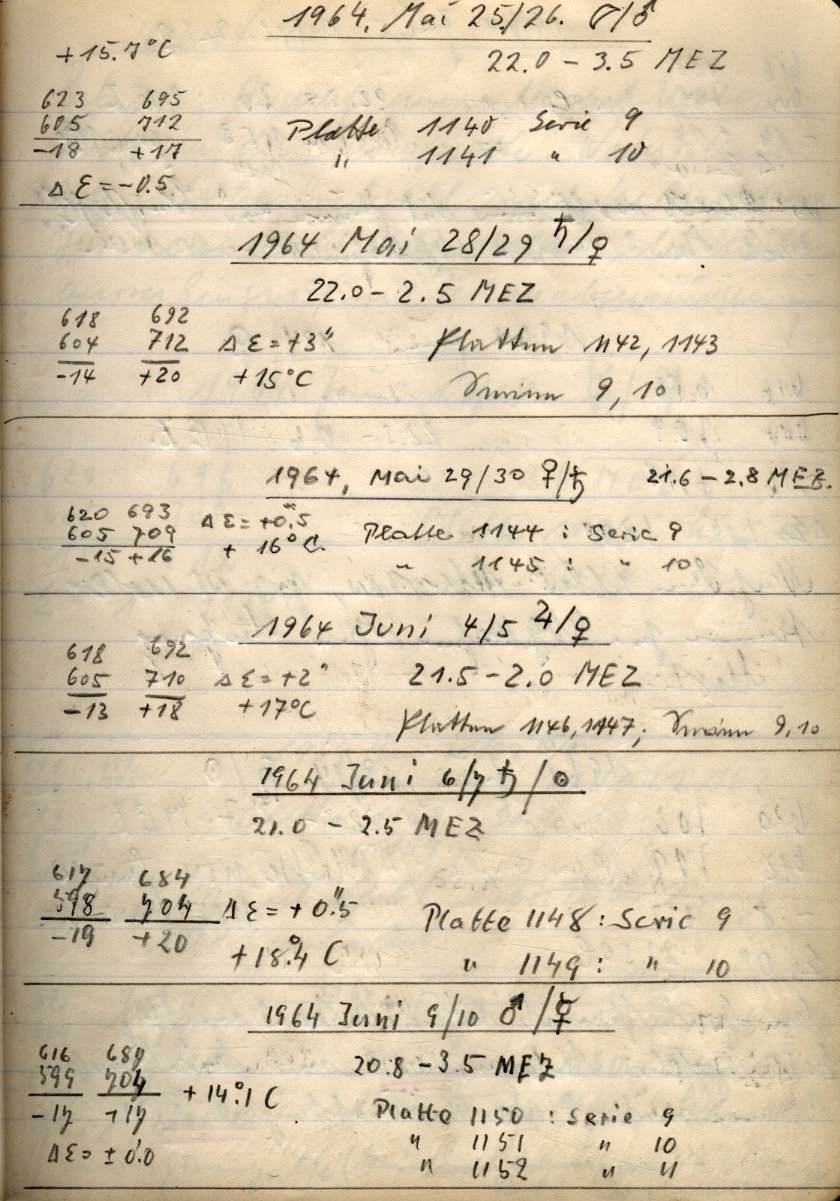 1964. Mai 25/26. ☾/♂
+15.7°C
22.0 – 3.5 MEZ
623 695
605 712
-18 +17
Platte 1140 Serie 9
" 1141 " 10
Δ ε = -0.5
1964 Mai 28/29 ♄/♀
22.0 – 2.5 MEZ
618 692
604 712 Δ ε = +3" Platten 1142, 1143
-14 +20 +15°C
9, 10
1964, Mai 29/30 ♀/♄ 21.6 – 2.8 MEZ.
620 693 Δ ε = +0."5
605 709 Platte 1144 : Serie 9
-15 +16 + 16° C. " 1145 : " 10
1964 Juni 4/5 ♃/♀
618 692
605 710 Δ ε = +2" 21.5 – 2.0 MEZ
-13 +18 +17°C
Platten 1146, 1147; 9, 10
1964 Juni 6/7 ♄/☉
21.0 – 2.5 MEZ
617 684
598 704 Δ ε = + 0."5 Platte 1148 : Serie 9
-19 +20 +18.°4 C " 1149 : " 10
1964 Juni 9/10 ♂/☿
616 687 20.8 – 3.5 MEZ
599 704 + 14.°1 C
-17 +17 Platte 1150 : Serie 9
" 1151 " 10
Δ ε = ± 0.0 " 1152 " 11